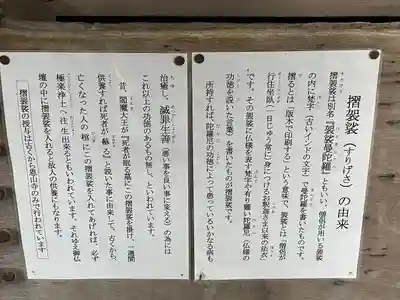 摺袈裟(すりげさ)の由来
摺袈裟は別名『袈裟曼陀羅』ともいい、僧侶が用いる袈裟
の内に梵字(古いインドの文字)で曼陀羅を書いたものです。
摺るとは「版木で印刷する」という意味で、袈裟とは「僧侶が
行住坐臥(一日じゅう常に)身につけるお釈迦さま以来の法衣」
です。その袈裟に仏様を表す梵字や有り難い陀羅尼(仏様の
功徳を説いた言葉)を書いたものが摺袈裟です。
所持すれば、陀羅尼の功徳によって患っているいかなる病も
治癒し、滅罪生善(悪い事を良い事に変える)の為には
これ以上の功徳のあるもの無し、といわれています。
昔、閻魔大王が『死者が眠る墓にこの摺袈裟を掛け、一週間
供養すれば死者が蘇る』と説いた事に由来して、古くから、
亡くなった人の棺にこの摺袈裟を入れてあげれば、必ず
極楽浄土へ往生出来るといわれています。それゆえ御仏
壇の中に摺袈裟を入れると故人の供養にもなります。
摺袈裟の授与は古くから恩山寺のみで行われています